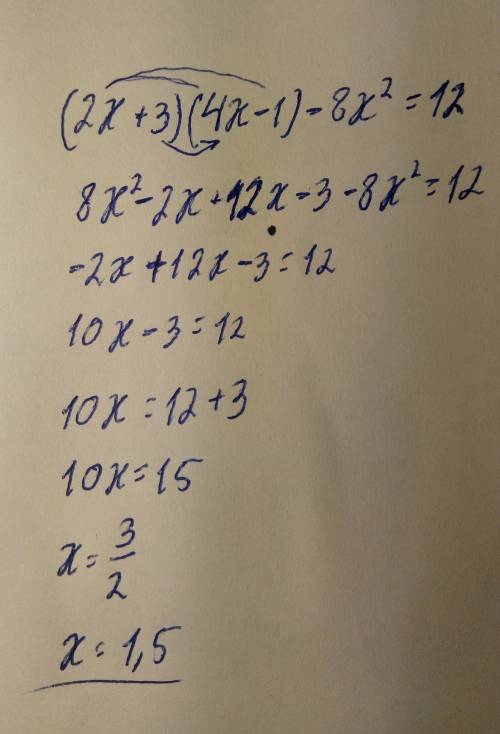 (2x+3)(4x-1)-8x²=12
8x²-2x+12x-3-8x²=12
-2x+12x-3=12
10x-3=12
10x=12+3
10x=15
x=3/2
x=1,5